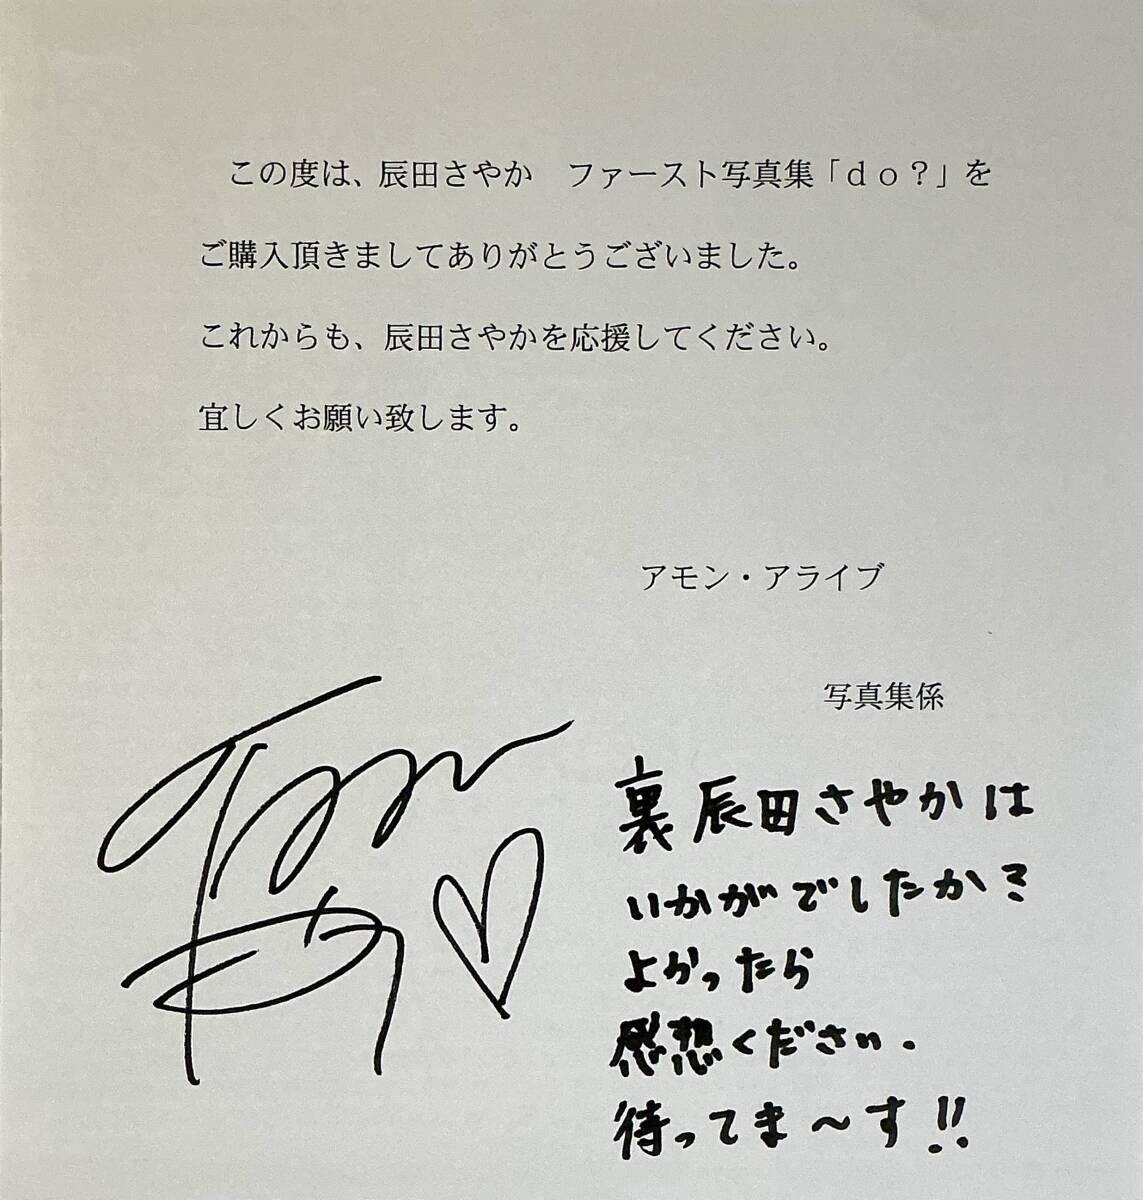 この度は、辰田さやか　ファースト写真集「ｄｏ？」を
ご購入頂きましてありがとうございました。
これからも、辰田さやかを応援してください。
宜しくお願い致します。
アモン・アライブ
写真集係
裏辰田さやかは
いかがでしたか？
よかったら
感想ください.
待ってま〜す!!